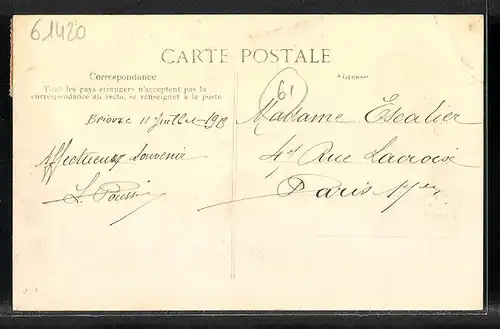 61420
CARTE POSTALE
Correspondance
Tous les pays étrangers n'acceptent pas la
correspondance au recto, se renseigner à la poste
Briouze 11 Juillet
Affectueux Souvenir
L.
Adresse
61
Madame Escalier
Rue Lacroix
Paris 17